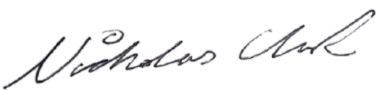 Nicholas Clark